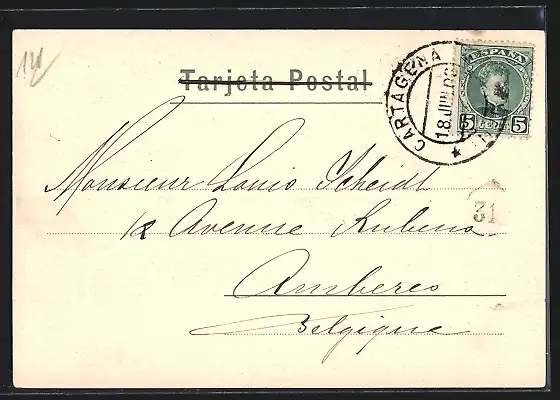 Tarjeta Postal
CARTAGENA
18 JUN
ESPAÑA
5 5
Monsieur Louis Scheidt
12 Avenue Rubens
31
Amberes
Belgique